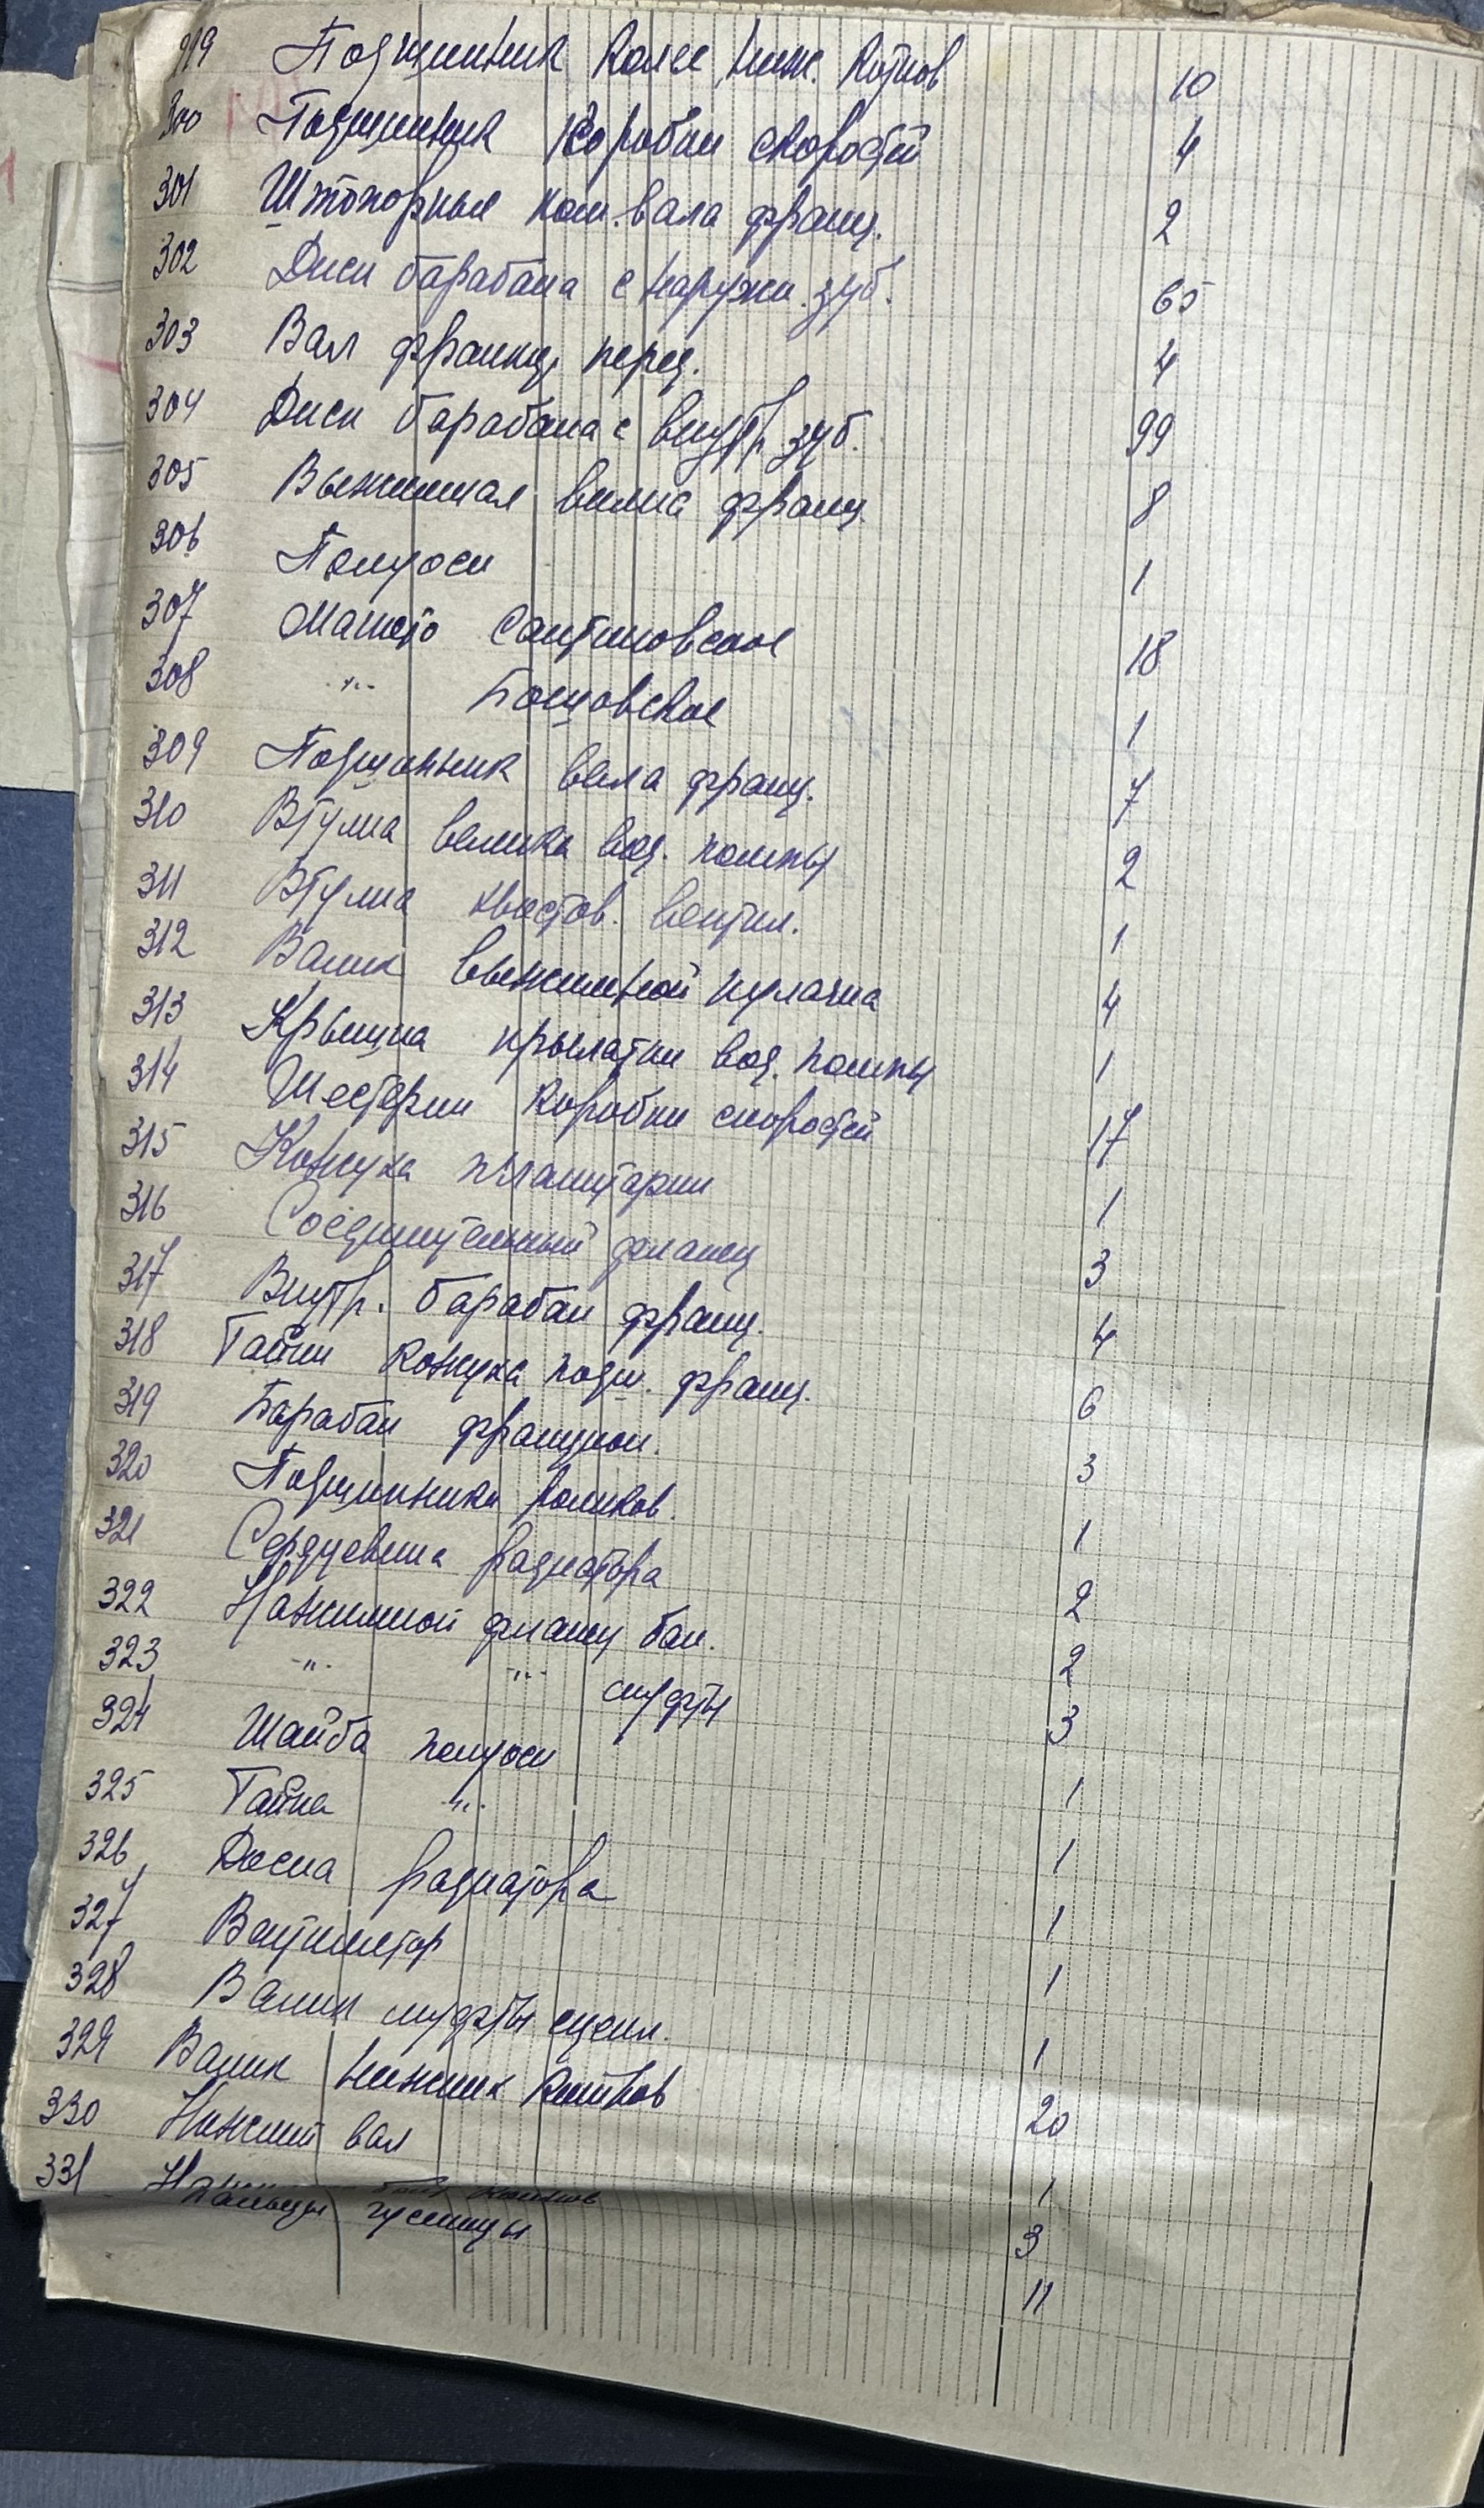 299 Подшипник колен. ниж. катков 10
300 Подшипник коробки скоростей 4
301 Штопорные кол. вала фракц. 2
302 Диск барабана с наружн. зуб. 65
303 Вал фракц. перед. 4
304 Диск барабана с внутр. зуб. 99
305 Выжимная вилка фракц. 8
306 Полуоси 1
307 Магнето Сантиновское 18
308 -"- Бошовское 1
309 Подшипник вала фракц. 7
310 Втулка валика вод. помпы 2
311 Втулка хвостов. вентил. 1
312 Валик выжимной кулачка 4
313 Крышка крылатки вод. помпы 1
314 Шестерни коробки скоростей 17
315 Кожуха планитарки 1
316 Соединительный фланец 3
317 Внутр. барабан фракц. 4
318 Гайки кожуха подш. фракц. 6
319 Барабан фракцион. 3
320 Подшипники роликов. 1
321 Сердцевина радиатора 2
322 Нажимной фланец бал. 2
323 -"- -"- муфты 3
324 Шайба полуоси 1
325 Гайка -"- 1
326 Доска радиатора 1
327 Вентилятор 1
328 Валик муфты сцепл. 1
329 Валик нижних катков 20
330 Нижний вал 1
331 катков 3
Пальцы гусеницы 11